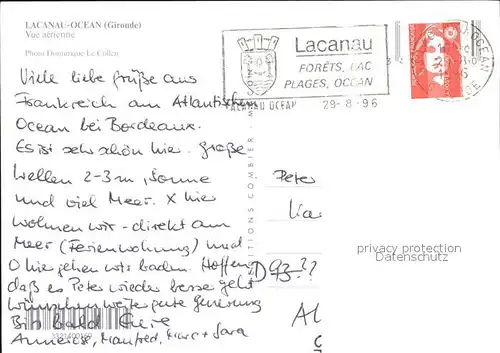 LACANAU-OCEAN (Gironde)
Vue aérienne
Photo Dominique Le Collen
Lacanau
FORÊTS, LAC
PLAGES, OCEAN
LACANAU OCEAN 29-8-96
Viele liebe grüße aus
Frankreich am Atlantischen
Ocean bei Bordeaux.
Es ist sehr schön hier. Große
Wellen 2-3 m, Sonne
und viel Meer. X hier
wohnen wir - direkt am
Meer (Ferienwohnung) und
O hier gehen wir baden. Hoffen
daß es Peter wieder besser geht
wünschen weiter gute Genesung
Bis bald Eure
Annerose, Manfred, Marc + Sara
Peter
D 93
EDITIONS COMBIER
privacy protection
Datenschutz